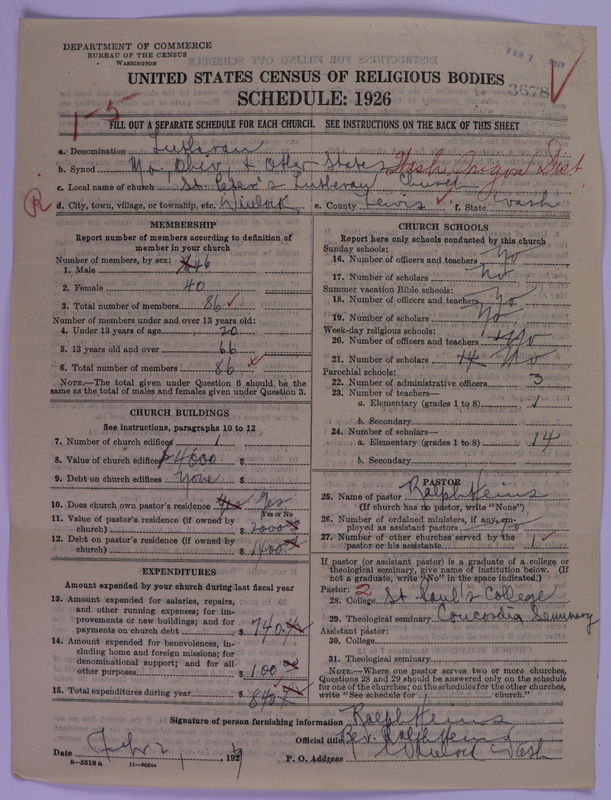 DEPARTMENT OF COMMERCE
BUREAU OF THE CENSUS
WASHINGTON
FEB 2
3678
UNITED STATES CENSUS OF RELIGIOUS BODIES
SCHEDULE: 1926
1-5
FILL OUT A SEPARATE SCHEDULE FOR EACH CHURCH. SEE INSTRUCTIONS ON THE BACK OF THIS SHEET
a. Denomination Lutheran
b. Synod Mo. Ohio & Other States Wash Oregon Dist
c. Local name of church St. Peter's Lutheran Church
R
d. City, town, village, or township, etc. Winlock e. County Lewis f. State Wash
MEMBERSHIP
Report number of members according to definition of
member in your church
Number of members, by sex:
1. Male 46
2. Female 40
3. Total number of members 86
Number of members under and over 13 years old:
4. Under 13 years of age 20
5. 13 years old and over 66
6. Total number of members 86
NOTE.—The total given under Question 6 should be the
same as the total of males and females given under Question 3.
CHURCH BUILDINGS
See instructions, paragraphs 10 to 12
7. Number of church edifices 1
8. Value of church edifices $4000 $
9. Debt on church edifices None $
10. Does church own pastor's residence Yes
Yes or No
11. Value of pastor's residence (if owned by
church) $ 2000
12. Debt on pastor's residence (if owned by
church) $ 1400
EXPENDITURES
Amount expended by your church during last fiscal year
13. Amount expended for salaries, repairs,
and other running expenses; for im-
provements or new buildings; and for
payments on church debt $ 740
14. Amount expended for benevolences, in-
cluding home and foreign missions; for
denominational support; and for all
other purposes $ 100
15. Total expenditures during year $ 840
CHURCH SCHOOLS
Report here only schools conducted by this church
Sunday schools:
16. Number of officers and teachers No
17. Number of scholars No
Summer vacation Bible schools:
18. Number of officers and teachers No
19. Number of scholars No
Week-day religious schools:
20. Number of officers and teachers No
21. Number of scholars 14 No
Parochial schools:
22. Number of administrative officers 3
23. Number of teachers—
a. Elementary (grades 1 to 8) 1
b. Secondary
24. Number of scholars—
a. Elementary (grades 1 to 8) 14
b. Secondary
PASTOR
25. Name of pastor Ralph Heins
(If church has no pastor, write "None")
26. Number of ordained ministers, if any, em-
ployed as assistant pastors No
27. Number of other churches served by the
pastor or his assistants 1
If pastor (or assistant pastor) is a graduate of a college or
theological seminary, give name of institution below. (If
not a graduate, write "No" in the space indicated.)
Pastor: 2
28. College St Paul's College
29. Theological seminary Concordia Seminary
Assistant pastor:
30. College
31. Theological seminary
NOTE.—Where one pastor serves two or more churches,
Questions 28 and 29 should be answered only on the schedule
for one of the churches; on the schedules for the other churches,
write "See schedule for church."
Signature of person furnishing information Ralph Heins
Official title Rev. Ralph Heins
Date Feb 2, 1927 P. O. Address Winlock Wash
8-5518a 11-9054a